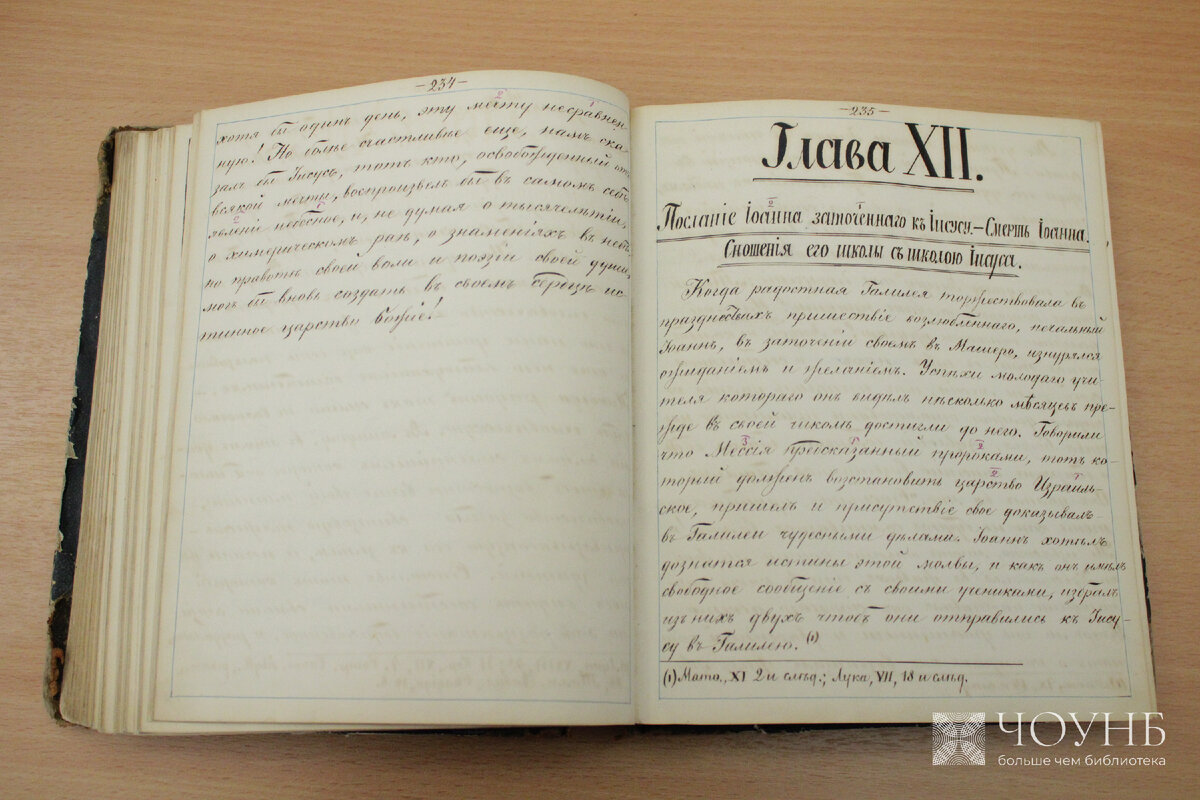 — 234 —
хотя бы одинъ день, эту мечту несравнен-
ную! Но болѣе счастливъ еще, намъ ска-
залъ бы Іисусъ, тотъ кто, освобожденный отъ
всякой мечты, воспроизвелъ бы въ самомъ себѣ
явленіе небесное, и, не думая о тысячелѣтіи,
о химерическомъ раѣ, о знаменіяхъ въ небѣ,
но правотѣ своей воли и поэзіи своей души,
могъ бы вновь создать въ своемъ сердцѣ ис-
тинное царство Божіе!
— 235 —
Глава XII.
Посланіе Іоанна заточеннаго къ Іисусу. — Смерть Іоанна.
Сношенія его школы съ школою Іисуса.
Когда радостная Галилея торжествовала въ
празднествахъ пришествіе возлюбленнаго, печальный
Іоаннъ, въ заточеніи своемъ въ Машеро, изнурялся
ожиданіемъ и желаніемъ. Успѣхи молодаго учи-
теля котораго онъ видѣлъ нѣсколько мѣсяцевъ пре-
жде въ своей чикомъ достигли до него. Говорили
что Мессія предсказанный пророками, тотъ ко-
торый долженъ возстановить царство Израиль-
ское, пришелъ и присутствіе свое доказывалъ
въ Галилеи чудесными дѣлами. Іоаннъ хотѣлъ
дознатся истины этой молвы, и какъ онъ имѣлъ
свободное сообщеніе съ своими учениками, избралъ
изъ нихъ двухъ чтобъ они отправились къ Іису-
су въ Галилею. (1)
(1) Матѳ., XI 2 и слѣд.; Лука, VII, 18 и слѣд.
ЧОУНБ
больше чем библиотека